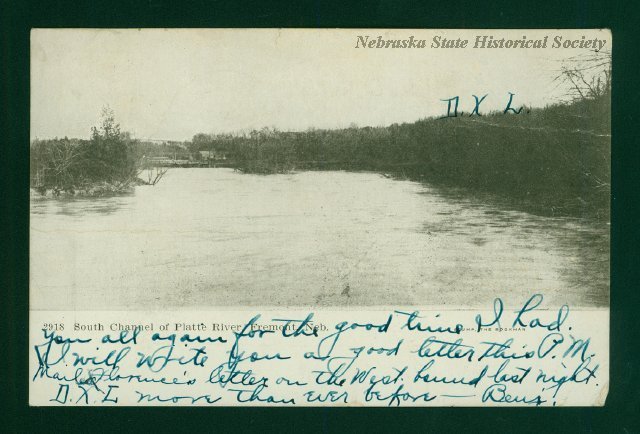 Nebraska State Historical Society
D. X L.
2918 South Channel of Platte River, Fremont, Neb. THE BOOKMAN
you all again for the good time I had.
I will write you a good letter this P.M.
Florence's letter on the West bound last night.
D. X L more than ever before — Benj.